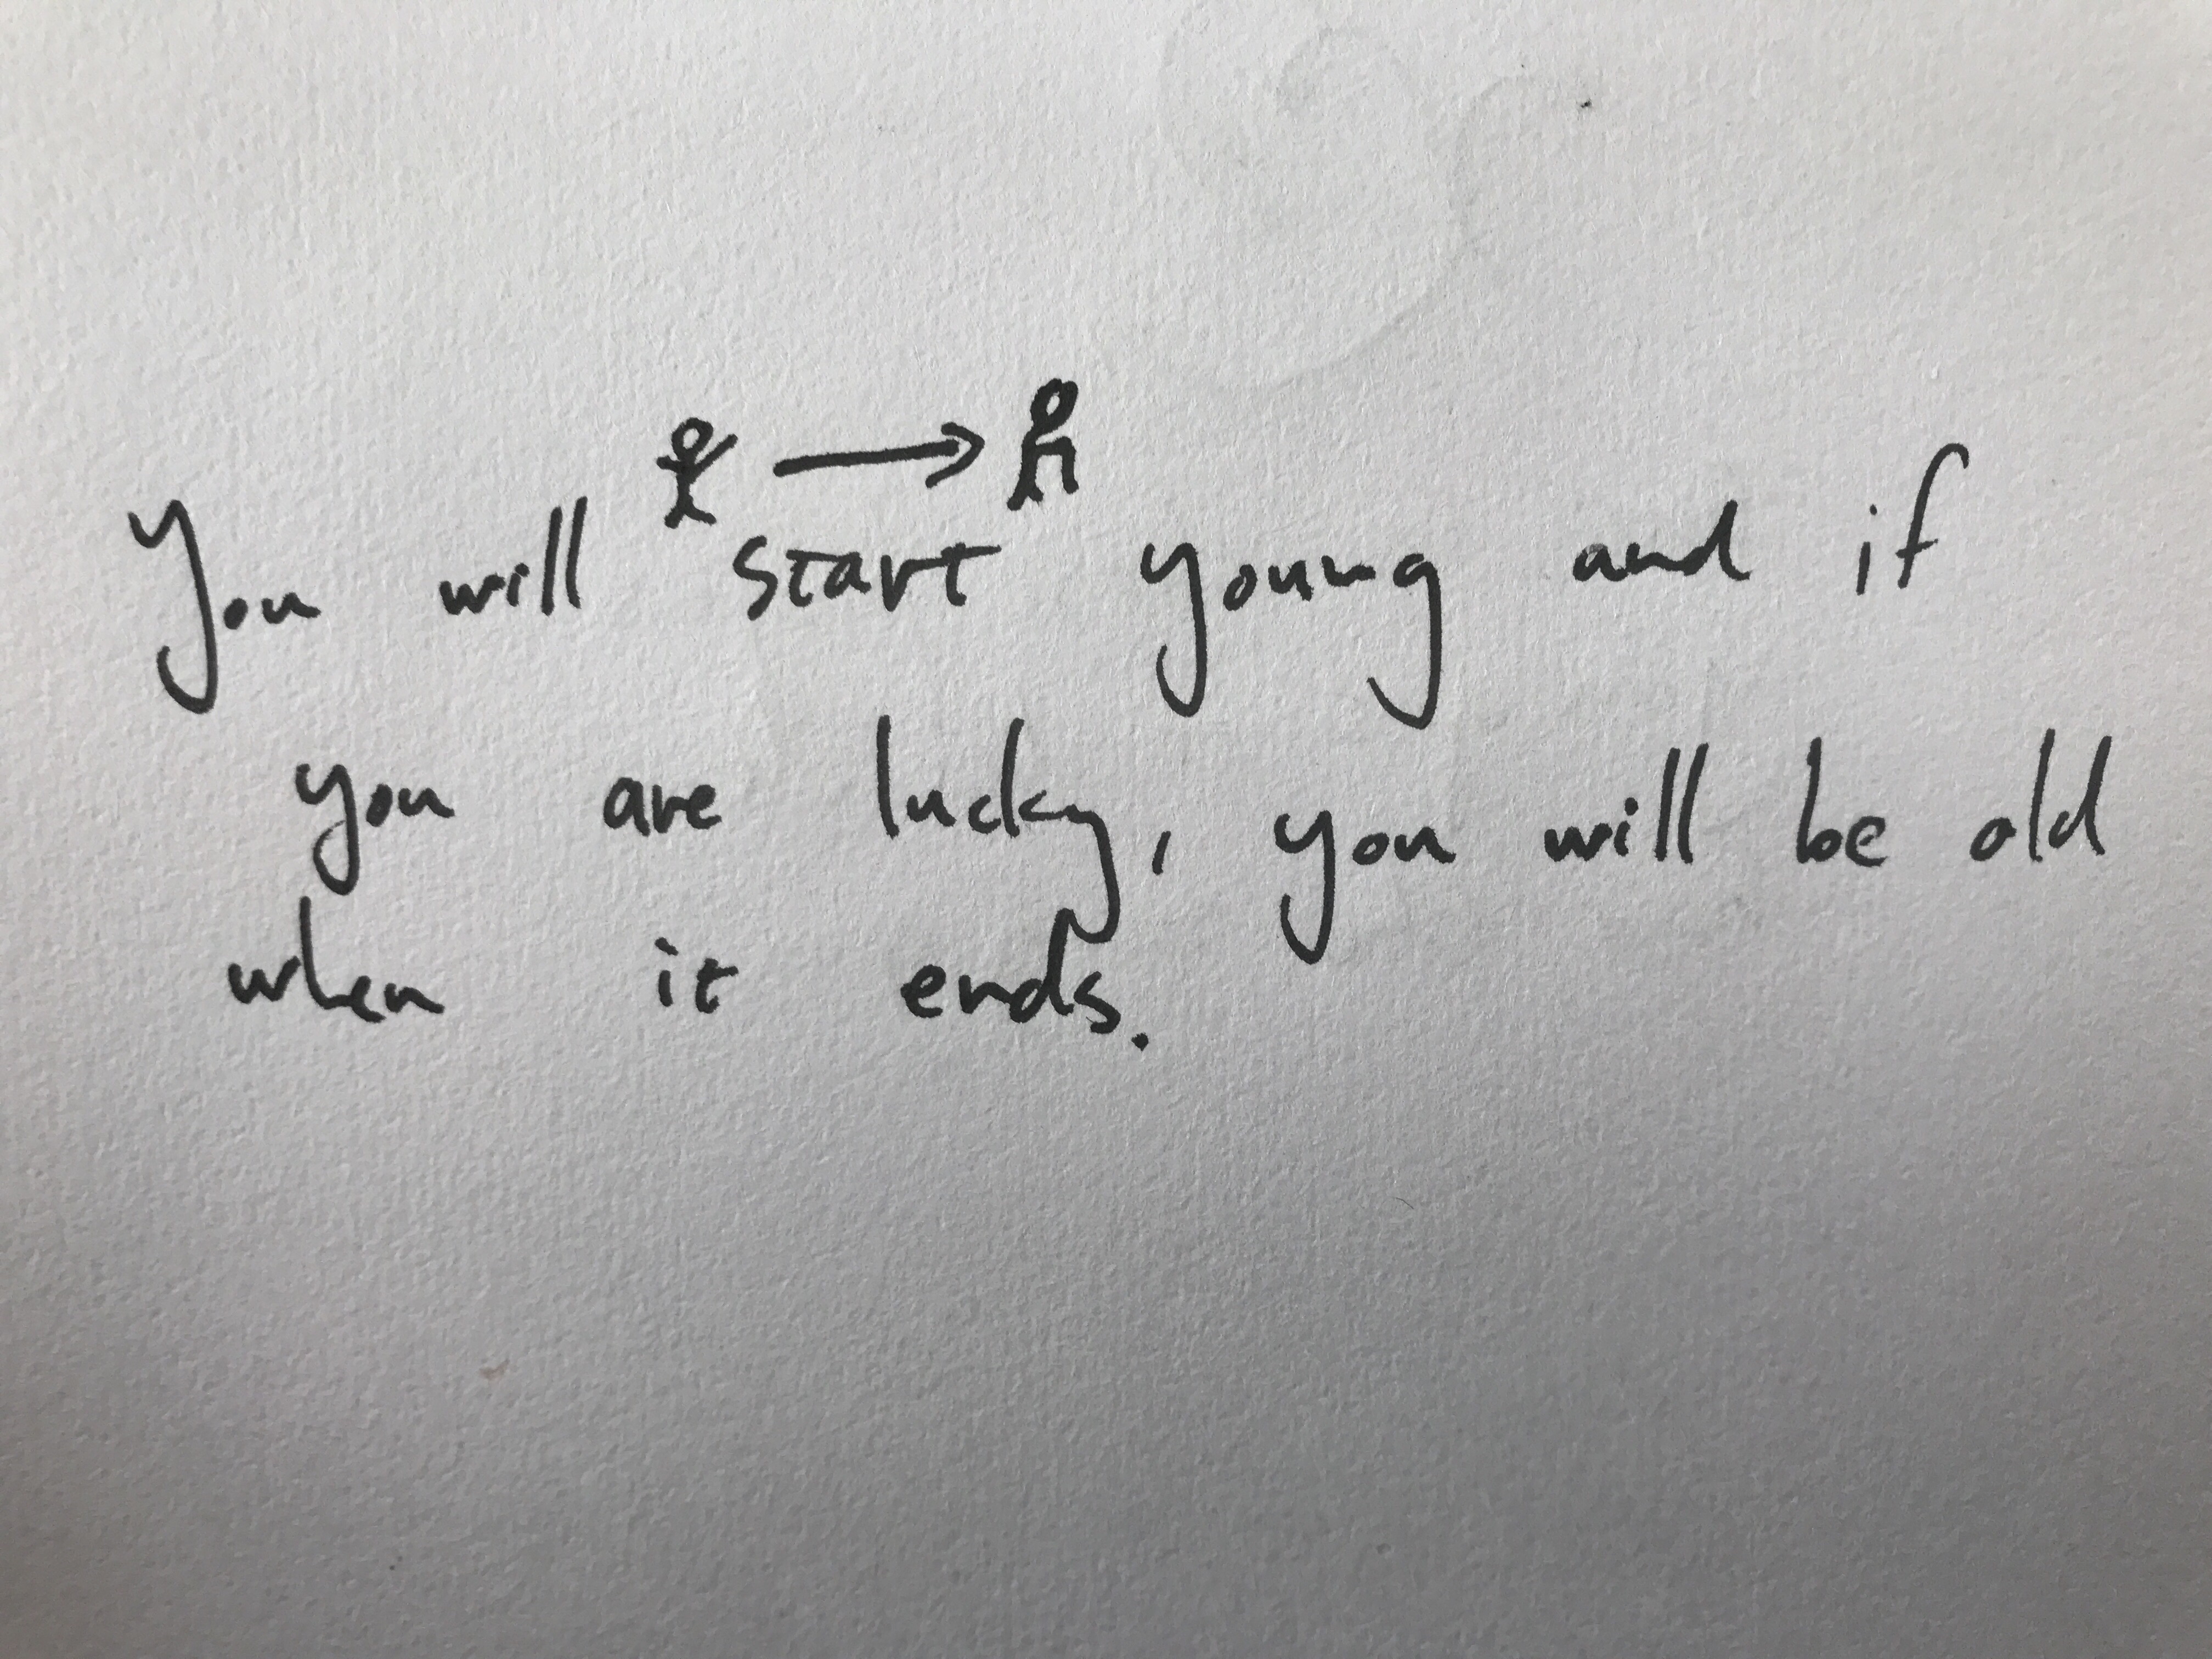 You will start young and if
you are lucky, you will be old
when it ends.